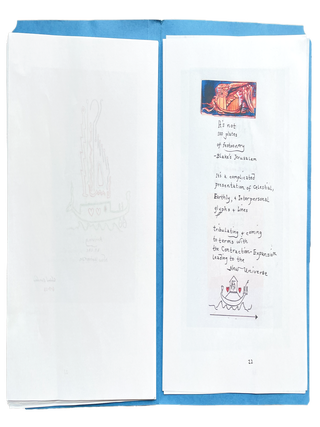 It's not
100 plates
of
- Blake's Jerusalem
It's a complicated
presentation of Celestial,
Earthly, + Interpersonal
glyphs + lines
tribulating + coming
to terms with
the Contraction-Expansion
leading to the
New-Universe
22